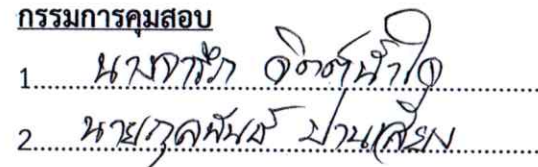 กรรมการคุมสอบ
1 นางจารึก จิตต์น้ำใจ
2 นายกุลพันธ์ ปานเสียม